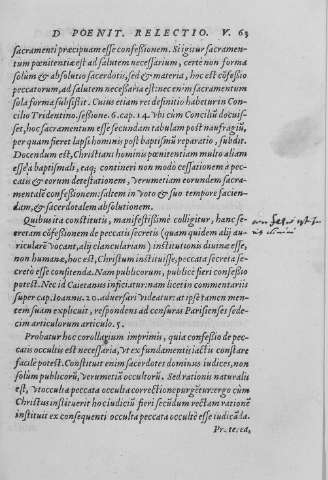 D POENIT. RELECTIO. V. 63
sacramenti præcipuam esse confessionem. Si igitur sacramen-
tum pœnitentiæ est ad salutem necessarium, certè non forma
solùm & absolutio sacerdotis, sed & materia, hoc est cōfessio
peccatorum, ad salutem necessaria est: nec enim sacramentum
sola forma subsistit. Cuius etiam rei definitio habetur in Con-
cilio Tridentino. sessione. 6. cap. 14. Vbi cùm Conciliū docuis-
set, hoc sacramentum esse secundam tabulam post naufragiū,
per quam fieret lapsi hominis post baptismū reparatio, subdit.
Docendum est, Christiani hominis pœnitentiam multo aliam
esse à baptismali, eaq; contineri non modo cessationem à pec-
catis & eorum detestationem, Verumetiam eorundem sacra-
mentalē confessionem: saltem in Voto & suo tempore facien-
dam, & sacerdotalem absolutionem.
Quibus ita constitutis, manifestissimè colligitur, hanc se-
cretam cōfessionem de peccatis secretis (quam quidem alij au-
riculare Vocant, alij clanculariam) institutionis diuinæ esse,
non humanæ, hoc est, Christum instituisse, peccata secreta se-
cretò esse confitenda. Nam publicorum, publicè fieri confessio
potest. Nec id Caietanus inficiatur: nam licet in commentariis
super cap. Ioannis. 20. aduersari Videatur: at ipse tamen men-
tem suam explicuit, respondens ad censuras Parisienses sede-
cim articulorum articulo. 5.
Probatur hoc corollarium imprimis, quia confessio de pec-
catis occultis est necessaria, Vt ex fundamentis iactis constare
facilè potest. Constituit enim sacerdotes dominus iudices, non
solùm publicorū, Verumetiā occultorū. Sed rationis naturalis
est, Vt occulta peccata occulta correctione purgētur: ergo cùm
Christus instituerit hoc iudiciū fieri secūdum rectam rationē
instituit ex consequenti occulta peccata occultè esse iudicāda.
Præterea,